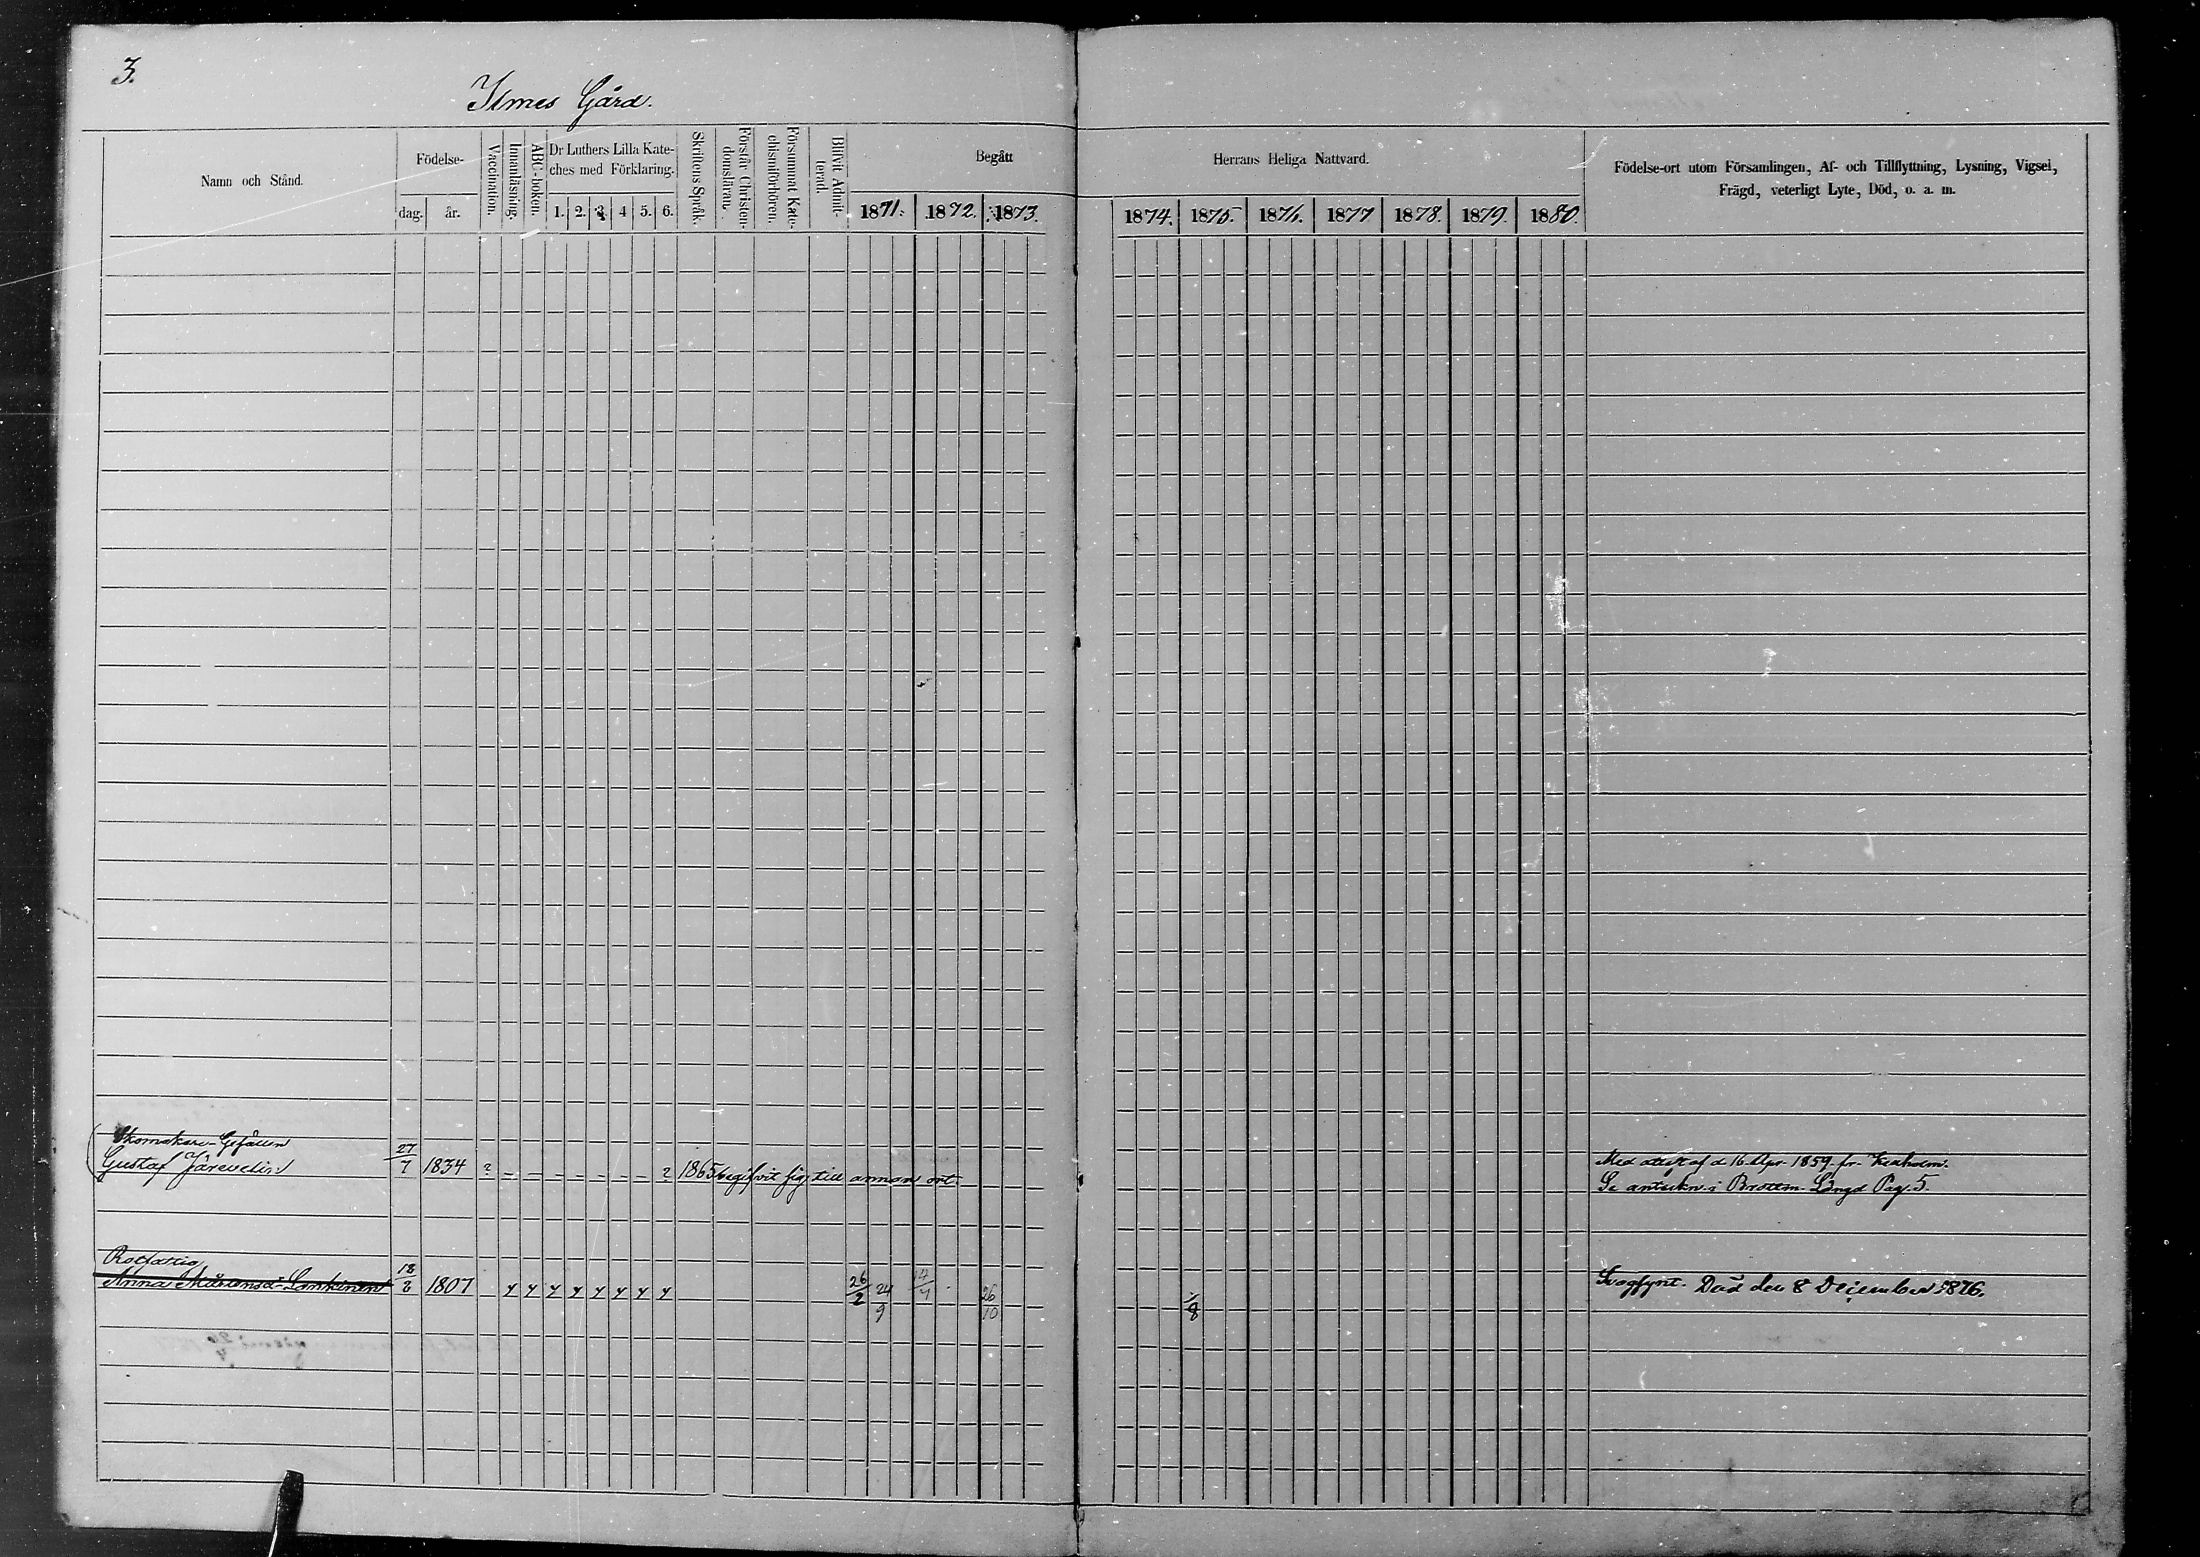 3.
Ilmes Gård.
Namn och Stånd.
Födelse-
dag.
år.
Vaccination.
Innanläsning.
ABC-boken.
Dr Luthers Lilla Kate-
ches med Förklaring.
1. 2. 3. 4 5. 6.
Skriftens Språk.
Förstår Christen-
domsläran.
Försummat Kate-
chismiförhören.
Blifvit Admit-
terad.
Begått
Herrans Heliga Nattvard.
1871. 1872. 1873.
1874. 1875. 1876. 1877 1878. 1879. 1880.
Födelse-ort utom Församlingen, Af- och Tillflyttning, Lysning, Vigsel,
Frägd, veterligt Lyte, Död, o. a. m.
Skomakare-Gesällen
Gustaf Järvelin 27/7 1834 2 1865 begifvit sig till annan ort.
Med attest af d 16 Apr. 1859 fr. Kexholm.
Se anteckn. i Brottm. Längd Pag. 5.
Rotfattig
Anna Mårtensd. Lankinen 18/8 1807 26/2 24/9 14/7 26/10 1/8
Svagsynt. Död den 8 December 1876.